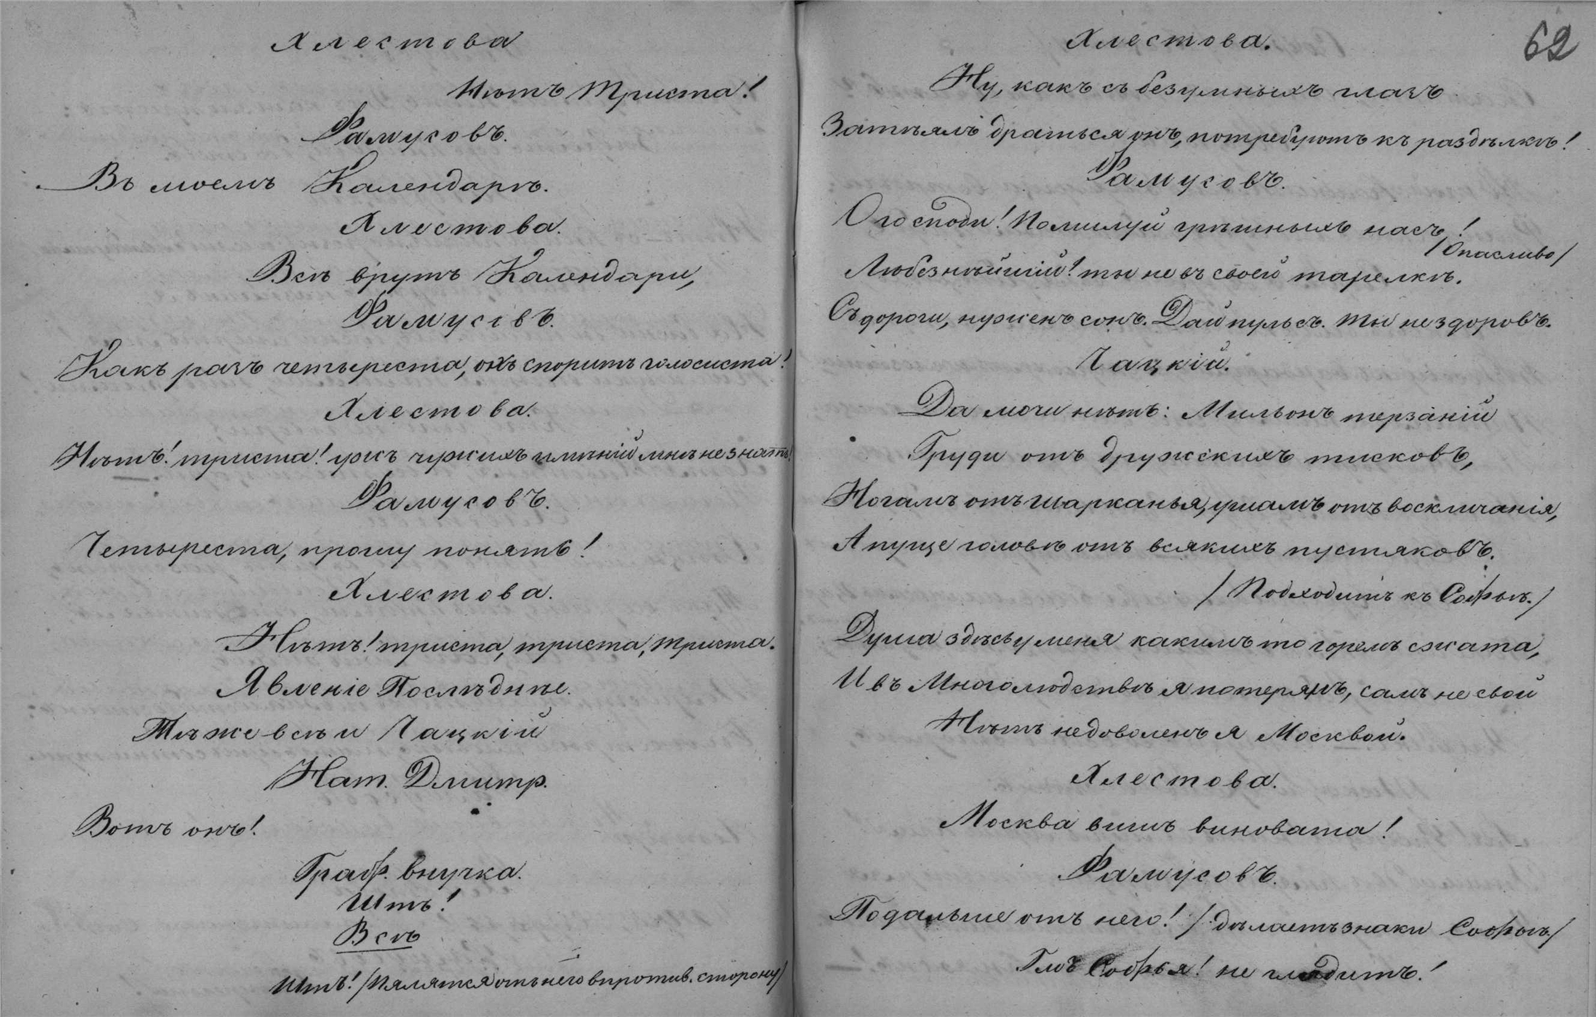 Хлестова
Нѣтъ триста!
Фамусовъ.
Въ моемъ Календарѣ.
Хлестова.
Всѣ врутъ Календари,
Фамусовъ.
Какъ разъ четыреста, охъ споритъ голосиста!
Хлестова.
Нѣтъ! триста! ужъ чужихъ имѣній мнѣ не знать!
Фамусовъ.
Четыреста, прошу понять!
Хлестова.
Нѣтъ! триста, триста, триста.
Явленіе Послѣднѣе.
Тѣже всѣ и Чацкій
Нат. Дмитр.
Вотъ онъ!
Граф. внучка.
Штъ!
Всѣ
Штъ! /Пялятся отъ него въ против. сторону/
62
Хлестова.
Ну, какъ съ безумныхъ глазъ
Затѣялъ драться онъ, потребуютъ къ раздѣлкѣ!
Фамусовъ.
О господи! Помилуй грѣшныхъ насъ!
/Опасливо/
Любезнѣйшій! ты не въ своей тарелкѣ.
Съ дороги, нуженъ сонъ. Дай пульсъ. ты нездоровъ.
Чацкій.
Да мочи нѣтъ: Мильонъ терзаній
Груди отъ дружскихъ тисковъ,
Ногамъ отъ шарканья, ушамъ отъ восклицанія,
А пуще головѣ отъ всякихъ пустяковъ.
/Подходитъ къ Софьѣ./
Душа здѣсь у меня какимъ то горемъ сжата,
И въ Многолюдствѣ я потерянъ, самъ не свой
Нѣтъ недоволенъ я Москвой.
Хлестова.
Москва вишь виновата!
Фамусовъ.
Подальше отъ него! /дѣлаетъ знаки Софьѣ/
Гмъ Софья! не глядитъ!